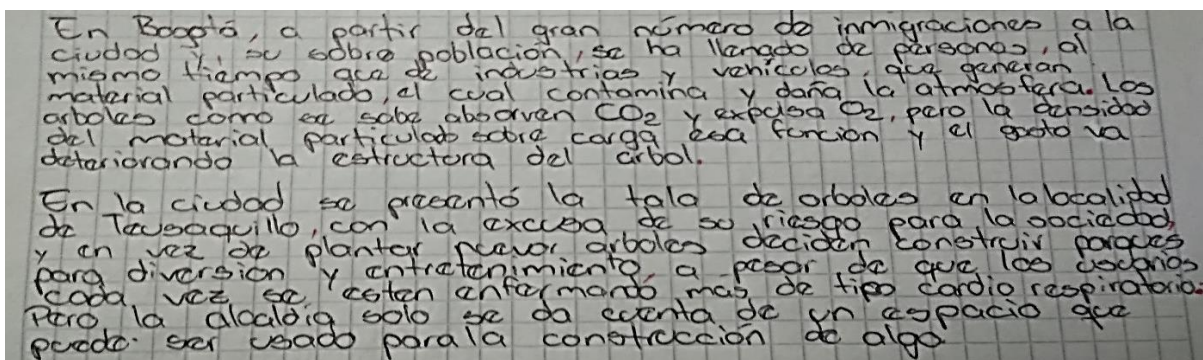 En Bogotá, a partir del gran número de inmigraciones a la
ciudad y su sobre poblacion, se ha llenado de personas, al
mismo tiempo que de industrias y vehiculos, que generan
material particulado, el cual contamina y daña la atmosfera. Los
arboles como se sabe absorven CO2 y expulsa O2, pero la densidad
del material particulado sobre carga esa funcion y el va
deteriorando la estructura del arbol.
En la ciudad se presentó la tala de arboles en la localidad
de Teusaquillo, con la excusa de su riesgo para la sociedad,
y en vez de plantar nuevos arboles deciden construir parques
para diversion y entretenimiento, a pesar de que los usuarios
cada vez se esten enfermando mas de tipo cardio respiratorio.
Pero la alcaldia solo se da cuenta de un espacio que
puede ser usado para la construccion de algo